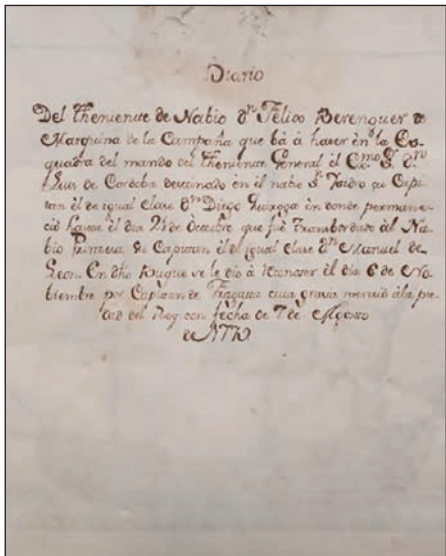 Diario
Del Theniente de Nabio Dn. Felix Berenguer de
Marquina de la Campaña que bà à hacer en la Es-
quadra del mando del Theniente General el Exmo. Sr. Dn.
Luis de Cordoba destinado en el nabio Sn. Isidro su Capi-
tan el de igual clase Dn. Diego Quiroga en donde permane-
ció hasta el dia 21 de Octubre que fuè transbordado àl Na-
bio Princesa su Capitan el de igual clase Dn. Manuel de
Leon. En dho Buque se le dio à reconocer el dia 6 de No-
biembre por Capitan de Fragata cuia gracia mereciò à la pie-
dad del Rey con fecha de 7 de Agosto
de